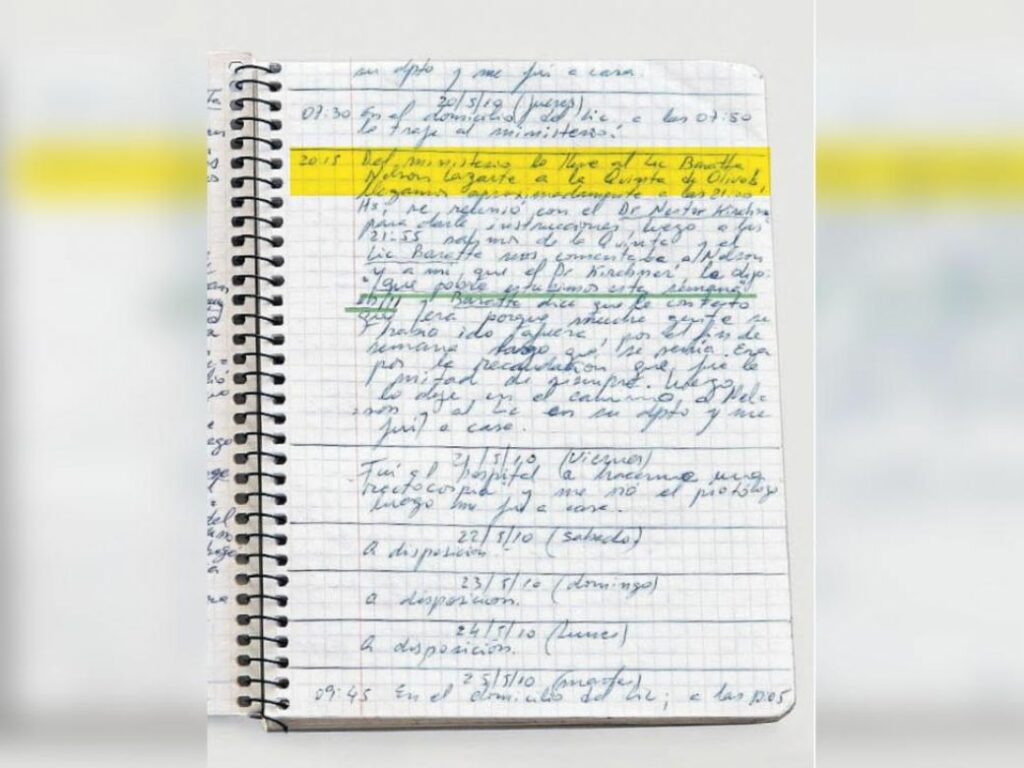 su dpto y me fui a casa.
20/5/10 (jueves)
07:30 En el domicilio del Lic, a las 07:50
lo traje al ministerio.
20:15 Del ministerio lo lleve al Lic Baratta
Nelson Lazarte a la Quinta de Olivos,
llegamos aproximadamente a las
Hs, se reunió con el Dr Nestor Kirchner
para darle instrucciones, luego a las
21:55 salimos de la Quinta y el
Lic Baratta nos comentaba a Nelson
y a mi, que el Dr. Kirchner, le dijo:
"que pobre estuvimos esta semana"
Baratta dice que le contesto
que era porque mucha gente se
habia ido afuera, por el fin de
semana largo que se venia. Era
por la recaudación que fue la
mitad de siempre. Luego
lo deje en el camino a Nel-
son y al Lic en su dpto y me
fui a casa.
21/5/10 (viernes)
Fui al hospital a hacerme una
y me vio el
luego me fui a casa.
22/5/10 (sabado)
a disposicion.
23/5/10 (domingo)
a disposicion.
24/5/10 (lunes)
a disposición.
25/5/10 (martes)
09:45 En el domicilio del Lic; a las 10:05